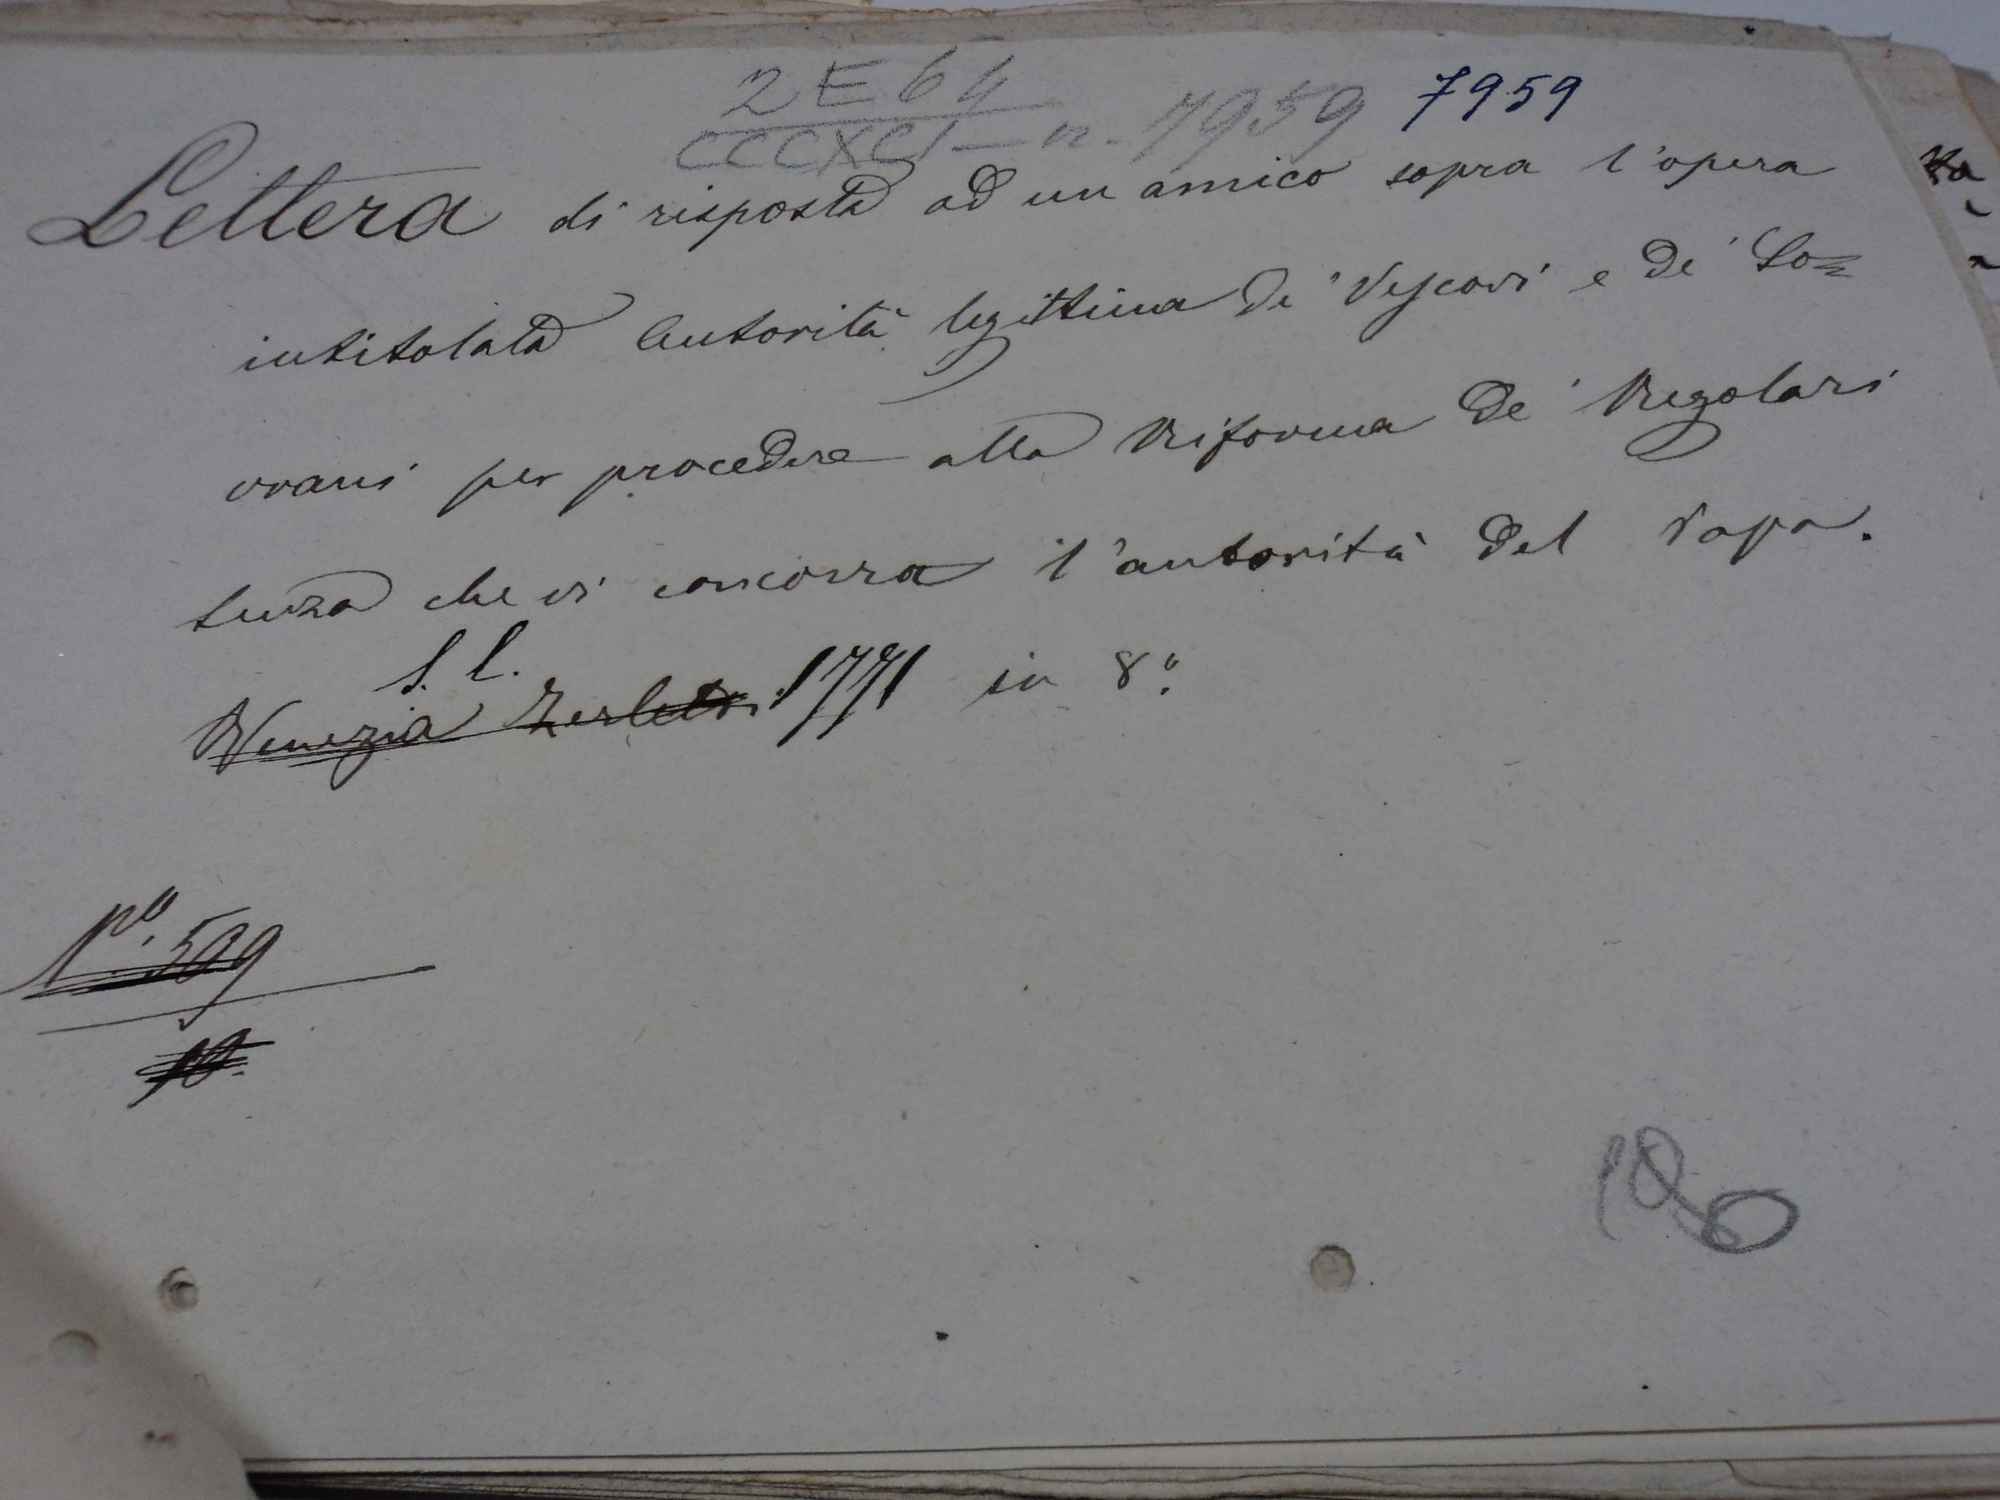 2 E 64
CCCXCI — n. 7959 7959
Lettera di risposta ad un amico sopra l'opera
intitolata Autorità legittima de' Vescovi e de' So=
vrani per procedere alla Riforma de' Regolari
senza che vi concorra l'autorità del Papa.
S. l.
Venezia Zerletti 1771 in 8.o
599